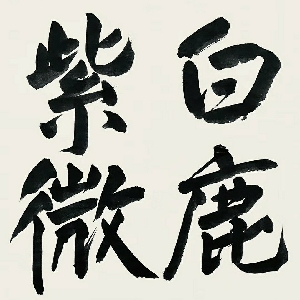 白鹿
紫微